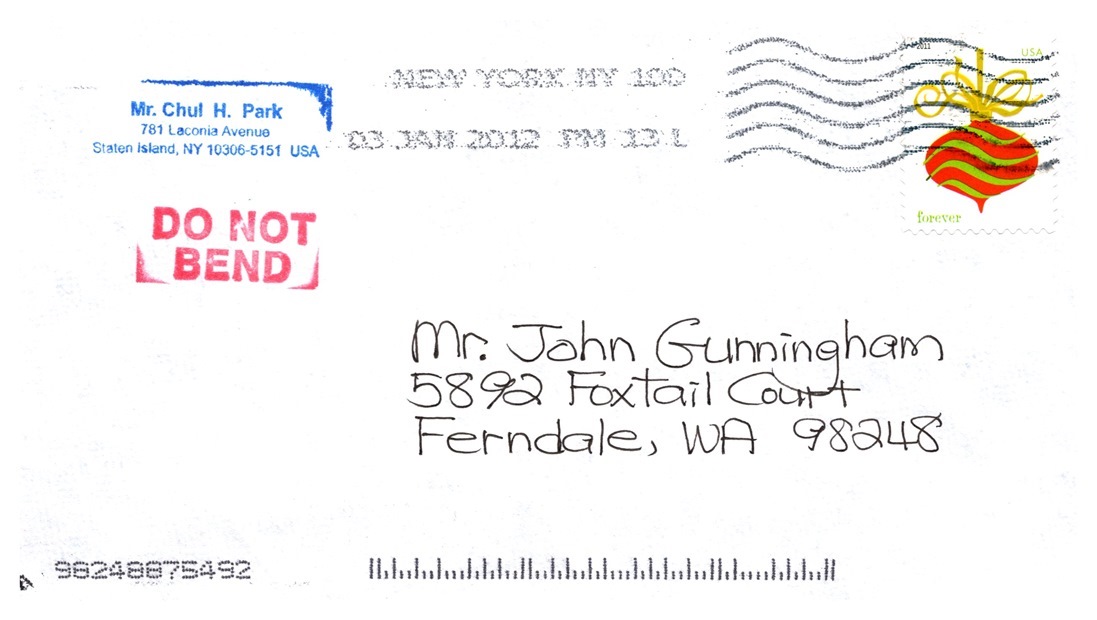 NEW YORK NY 100
03 JAN 2012 PM 13 L
2011
USA
forever
Mr. Chul H. Park
781 Laconia Avenue
Staten Island, NY 10306-5151 USA
DO NOT
BEND
Mr. John Gunningham
5892 Foxtail Court
Ferndale, WA 98248
98248875492